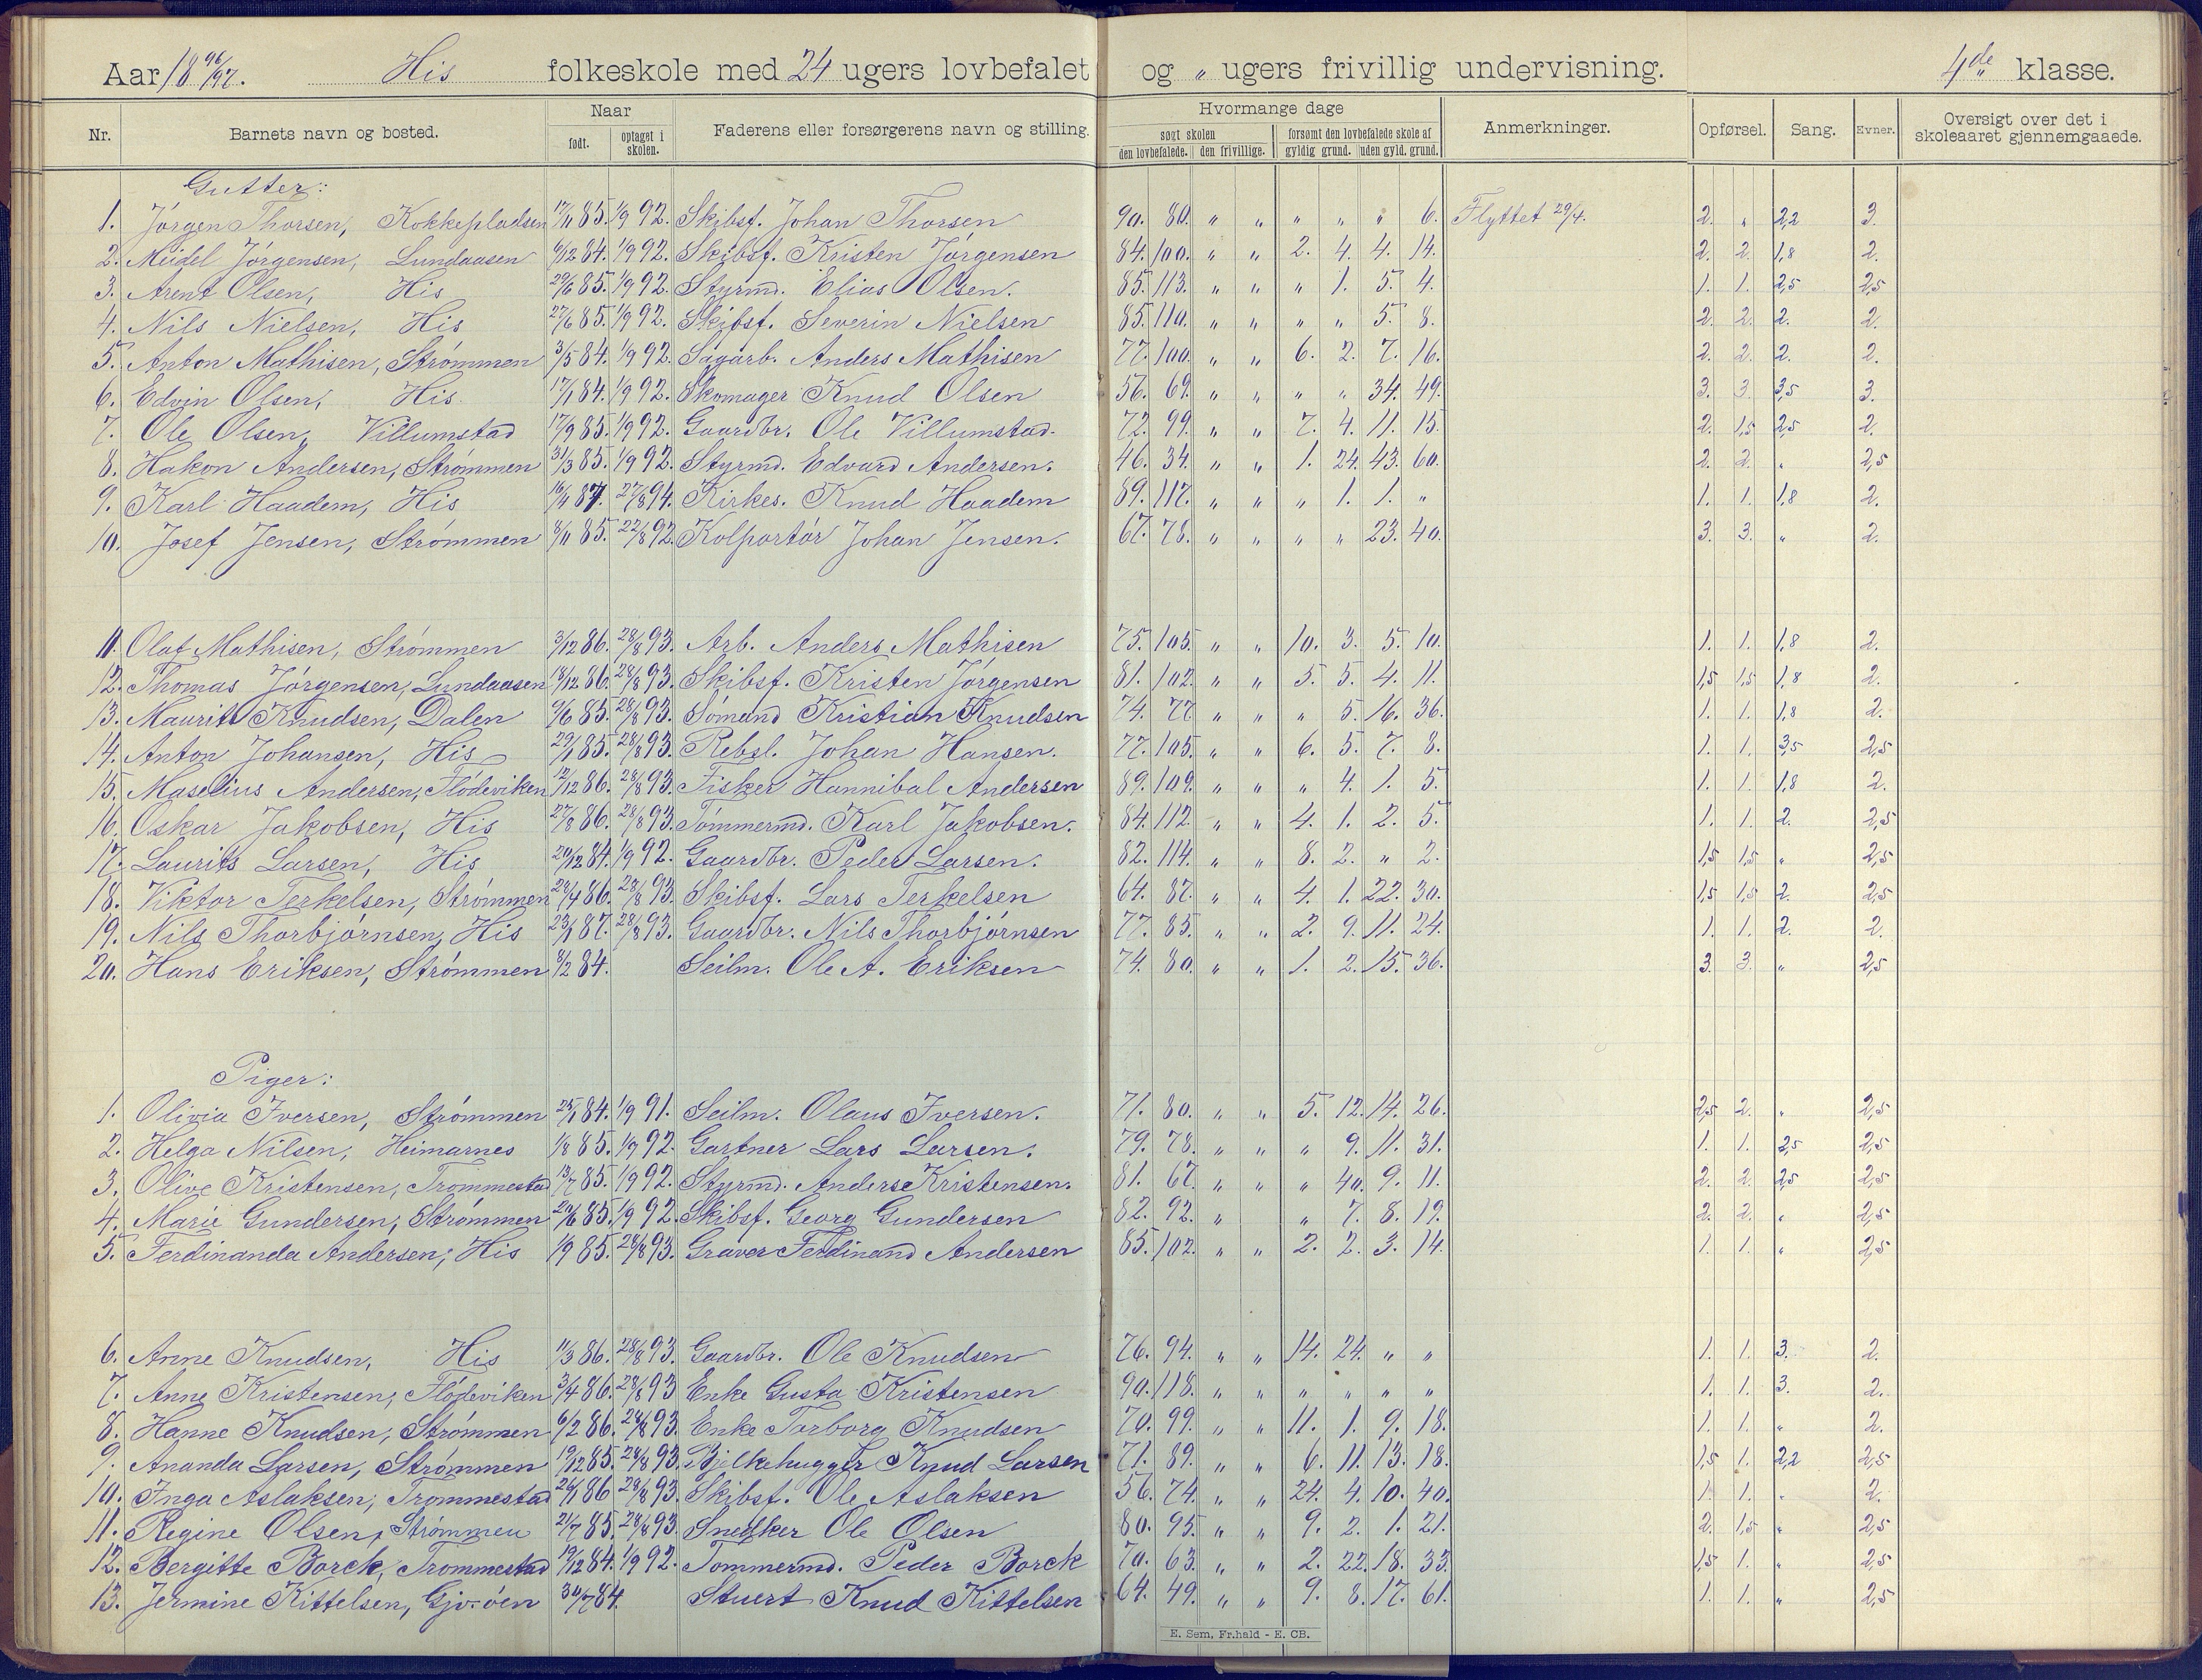 Aar 18 96/97. His folkeskole med 24 ugers lovbefalet og " ugers frivillig undervisning. 4de klasse.
Nr. Barnets navn og bosted. Naar født. optaget i skolen. Faderens eller forsørgerens navn og stilling. Hvormange dage søgt skolen den lovbefalede. den frivillige. forsømt den lovbefalede skole af gyldig grund. uden gyld. grund. Anmerkninger. Opførsel. Sang. Evner. Oversigt over det i skoleaaret gjennemgaaede.
Gutter:
1. Jørgen Thorsen, Kokkepladsen 17/11 85. 1/9 92. Skibsf. Johan Thorsen 90. 80. " " " " " 6. Flyttet 29/4. 2. " 2,2 3.
2. Meidel Jørgensen, Lundaasen 6/12 84. 1/9 92. Skibsf. Kristen Jørgensen 84. 100. " " 2. 4. 4. 14. 2. 2. 1,8 2.
3. Arent Olsen, His 29/6 85. 1/9 92. Styrmd. Elias Olsen. 85. 113. " " " 1. 5. 4. 1. 1. 2,5 2,5
4. Nils Nielsen, His 27/6 85. 1/9 92. Skibsf. Severin Nielsen 85. 110. " " " " 5. 8. 2. 2. 2. 2.
5. Anton Mathisen, Strømmen 3/5 84. 1/9 92. Sagarb. Anders Mathisen 77. 100. " " 6. 2. 7. 16. 2. 2. 2. 2.
6. Edvin Olsen, His 17/1 84. 1/9 92. Skomager Knud Olsen 56. 69. " " " " 34. 49. 3. 3. 3,5 3.
7. Ole Olsen, Villumstad 17/9 85. 1/9 92. Gaardbr. Ole Villumstad. 72. 99. " " 7. 4. 11. 15. 2. 1,5 2,5 2.
8. Hakon Andersen, Strømmen 31/3 85. 1/9 92. Styrmd. Edvard Andersen. 46. 34. " " 1. 24. 43. 60. 2. 2. " 2,5
9. Karl Haadem, His 16/11 87. 27/8 94. Kirkes. Knud Haadem 89. 117. " " " 1. 1. " 1. 1. 1,8 2.
10. Josef Jensen, Strømmen 8/11 85. 22/8 92. Kolportør Johan Jensen. 67. 78. " " " " 23. 40. 3. 3. " 2.
11. Olaf Mathisen, Strømmen 3/12 86. 28/8 93. Arb. Anders Mathisen 75. 105. " " 10. 3. 5. 10. 1. 1. 1,8 2.
12. Thomas Jørgensen, Lundaasen 18/12 86. 28/8 93. Skibsf. Kristen Jørgensen 81. 102. " " 5. 5. 4. 11. 1,5 1,5 1,8 2.
13. Maurits Knudsen, Dalen 9/6 85. 28/8 93. Sømand Kristian Knudsen 74. 77 " " " 5. 16. 36. 1. 1. 1,8 2.
14. Anton Johansen, His 29/1 85. 28/8 93. Rebsl. Johan Hansen. 77. 105. " " 6. 5. 7. 8. 1. 1. 3,5 2,5
15. Maselius Andersen, Flødeviken 12/12 86. 28/8 93. Fisker Hannibal Andersen 89. 109. " " " 4. 1. 5. 1. 1. 1,8 2.
16. Oskar Jakobsen, His 27/8 86. 28/8 93. Tømmermd. Karl Jakobsen. 84. 112. " " 4. 1. 2. 5. 1. 1. 2. 2,5
17. Laurits Larsen, His 20/12 84. 1/9 92. Gaardbr. Peder Larsen. 82. 114. " " 8. 2. " 2. 1,5 1,5 " 2,5
18. Viktor Terkelsen, Strømmen 28/4 86. 28/8 93. Skibsf. Lars Terkelsen 64. 87. " " 4. 1. 22. 30. 1,5 1,5 2. 2,5
19. Nils Thorbjørnsen, His 23/1 87. 28/8 93. Gaardbr. Nils Thorbjørnsen 77. 85. " " 2. 9. 11. 24. 1. 1. 2. 2.
20. Hans Eriksen, Strømmen 8/2 84. Seilm. Ole A. Eriksen 74. 80. " " 1. 2. 15. 36. 3. 3. " 2,5
Piger:
1. Olivia Iversen, Strømmen 25/1 84. 1/9 91. Seilm. Olaus Iversen. 71. 80. " " 5. 12. 14. 26. 2,5 2. " 2,5
2. Helga Nilsen, Heimarnes 1/8 85. 1/9 92. Gartner Lars Larsen. 79. 78. " " " 9. 11. 31. 1. 1. 2,5 2,5
3. Olive Kristensen, Trommestad 13/7 85. 1/9 92. Styrmd. Anders Kristensen. 81. 67. " " " 40. 9. 11. 2. 2. 2,5 2,5
4. Marie Gundersen, Strømmen 20/6 85. 1/9 92. Skibsf. Georg Gundersen 82. 92. " " 7. 8. 19. 2. 2. " 2,5
5. Ferdinanda Andersen, His 1/9 85. 28/8 93. Graver Ferdinand Andersen 85. 102. " " 2. 2. 3. 14. 1. 1. " 2,5
6. Anne Knudsen, His 11/3 86. 28/8 93. Gaardbr. Ole Knudsen 76. 94. " " 14. 24. " " 1. 1. 3. 2.
7. Anne Kristensen, Flødeviken 3/4 86. 28/8 93 Enke Gusta Kristensen 90. 118. " " " " " " 1. 1. 3. 2.
8. Hanne Knudsen, Strømmen 6/2 86. 28/8 93. Enke Torborg Knudsen 70. 99. " " 11. 1. 9. 18. 1. 1. " 2.
9. Ananda Larsen, Strømmen 19/12 85. 28/8 93. Bjelkehugger Knud Larsen 71. 89. " " 6. 11. 13. 18. 1,5 1. 2,2 2,5
10. Inga Aslaksen, Trommestad 26/1 86 28/8 93. Skibsf. Ole Aslaksen 56. 74. " " 24. 4. 10. 40. 1. 1. " 2.
11. Regine Olsen, Strømmen 21/7 85. 28/8 93. Snedker Ole Olsen 80. 95. " " 9. 2. 1. 21. 2. 1,5 " 2,5
12. Bergitte Borck, Trommestad 19/12 84. 1/9 92. Tømmermd. Peder Borck 70. 63. " " 2. 22. 18. 33. 1,5 1. " 2,5
13. Jermine Kittelsen, Gjv-øen 30/7 84. Stuert Knud Kittelsen 64. 49. " " 9. 8. 17. 61. 1. 1. " 2,5
E. Sem, Fr.hald - E. CB.